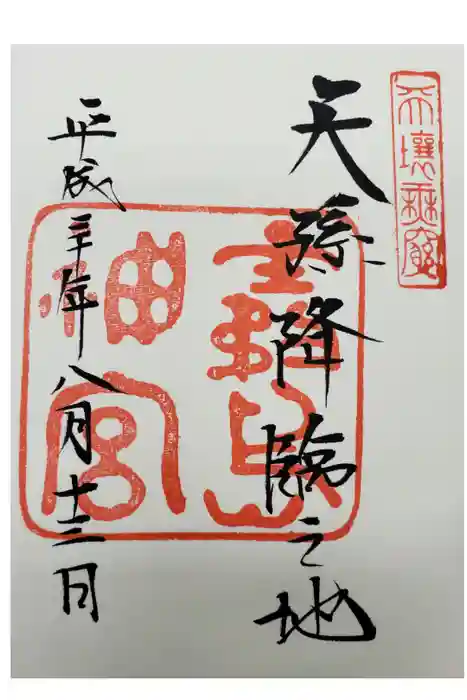 天壤無窮
天孫降臨之地
霧島
神宮
平成三十年八月十三日